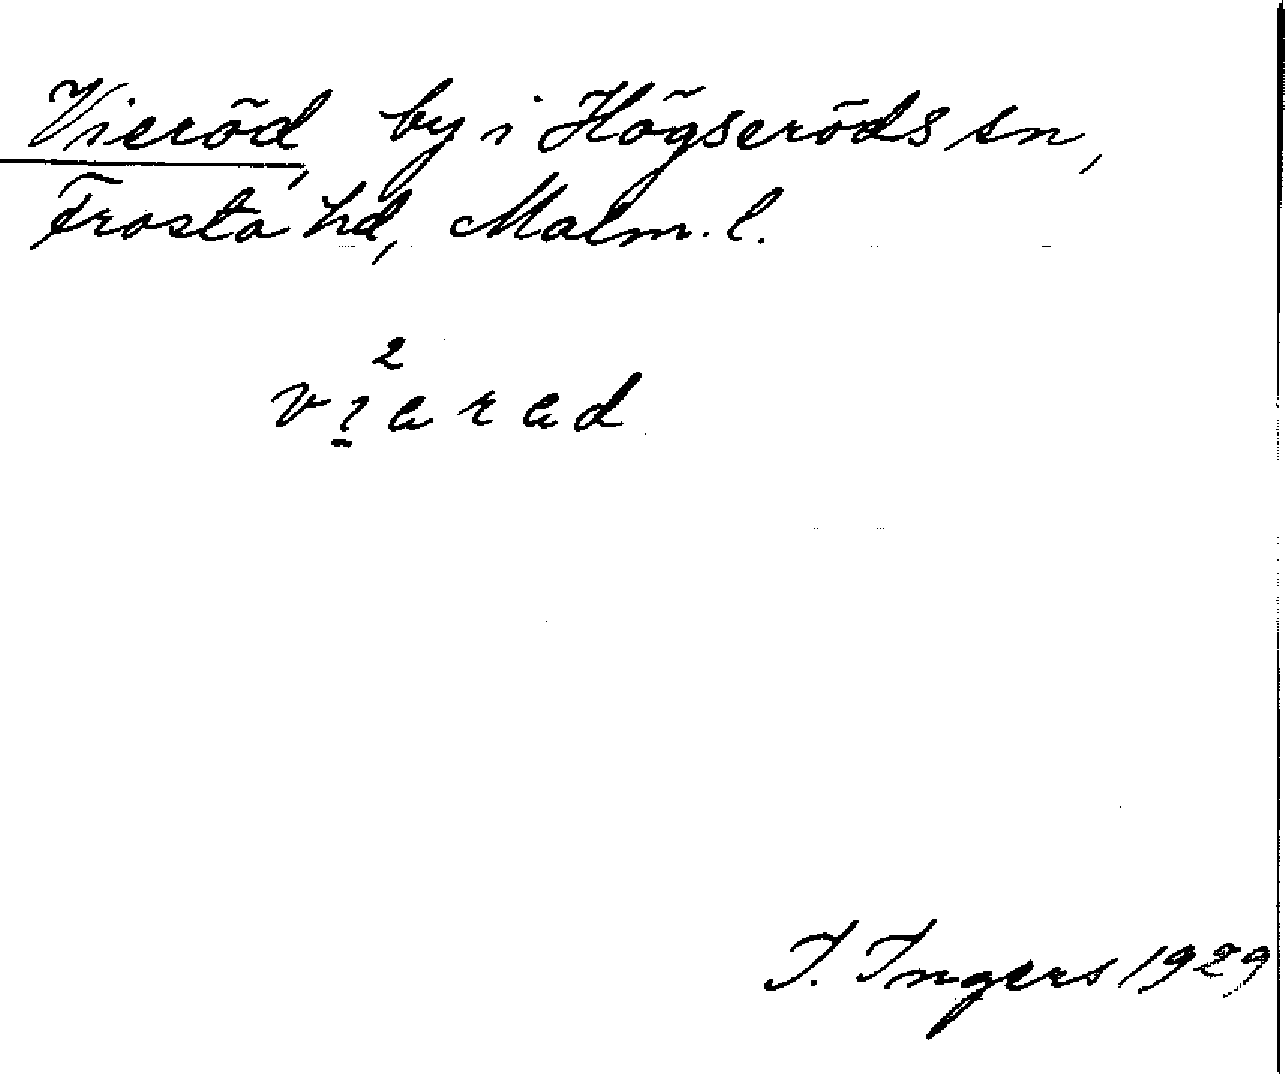 Vieröd, by i Högseröds sn,
Frosta hd, Malm. l.
I. Ingers 1929